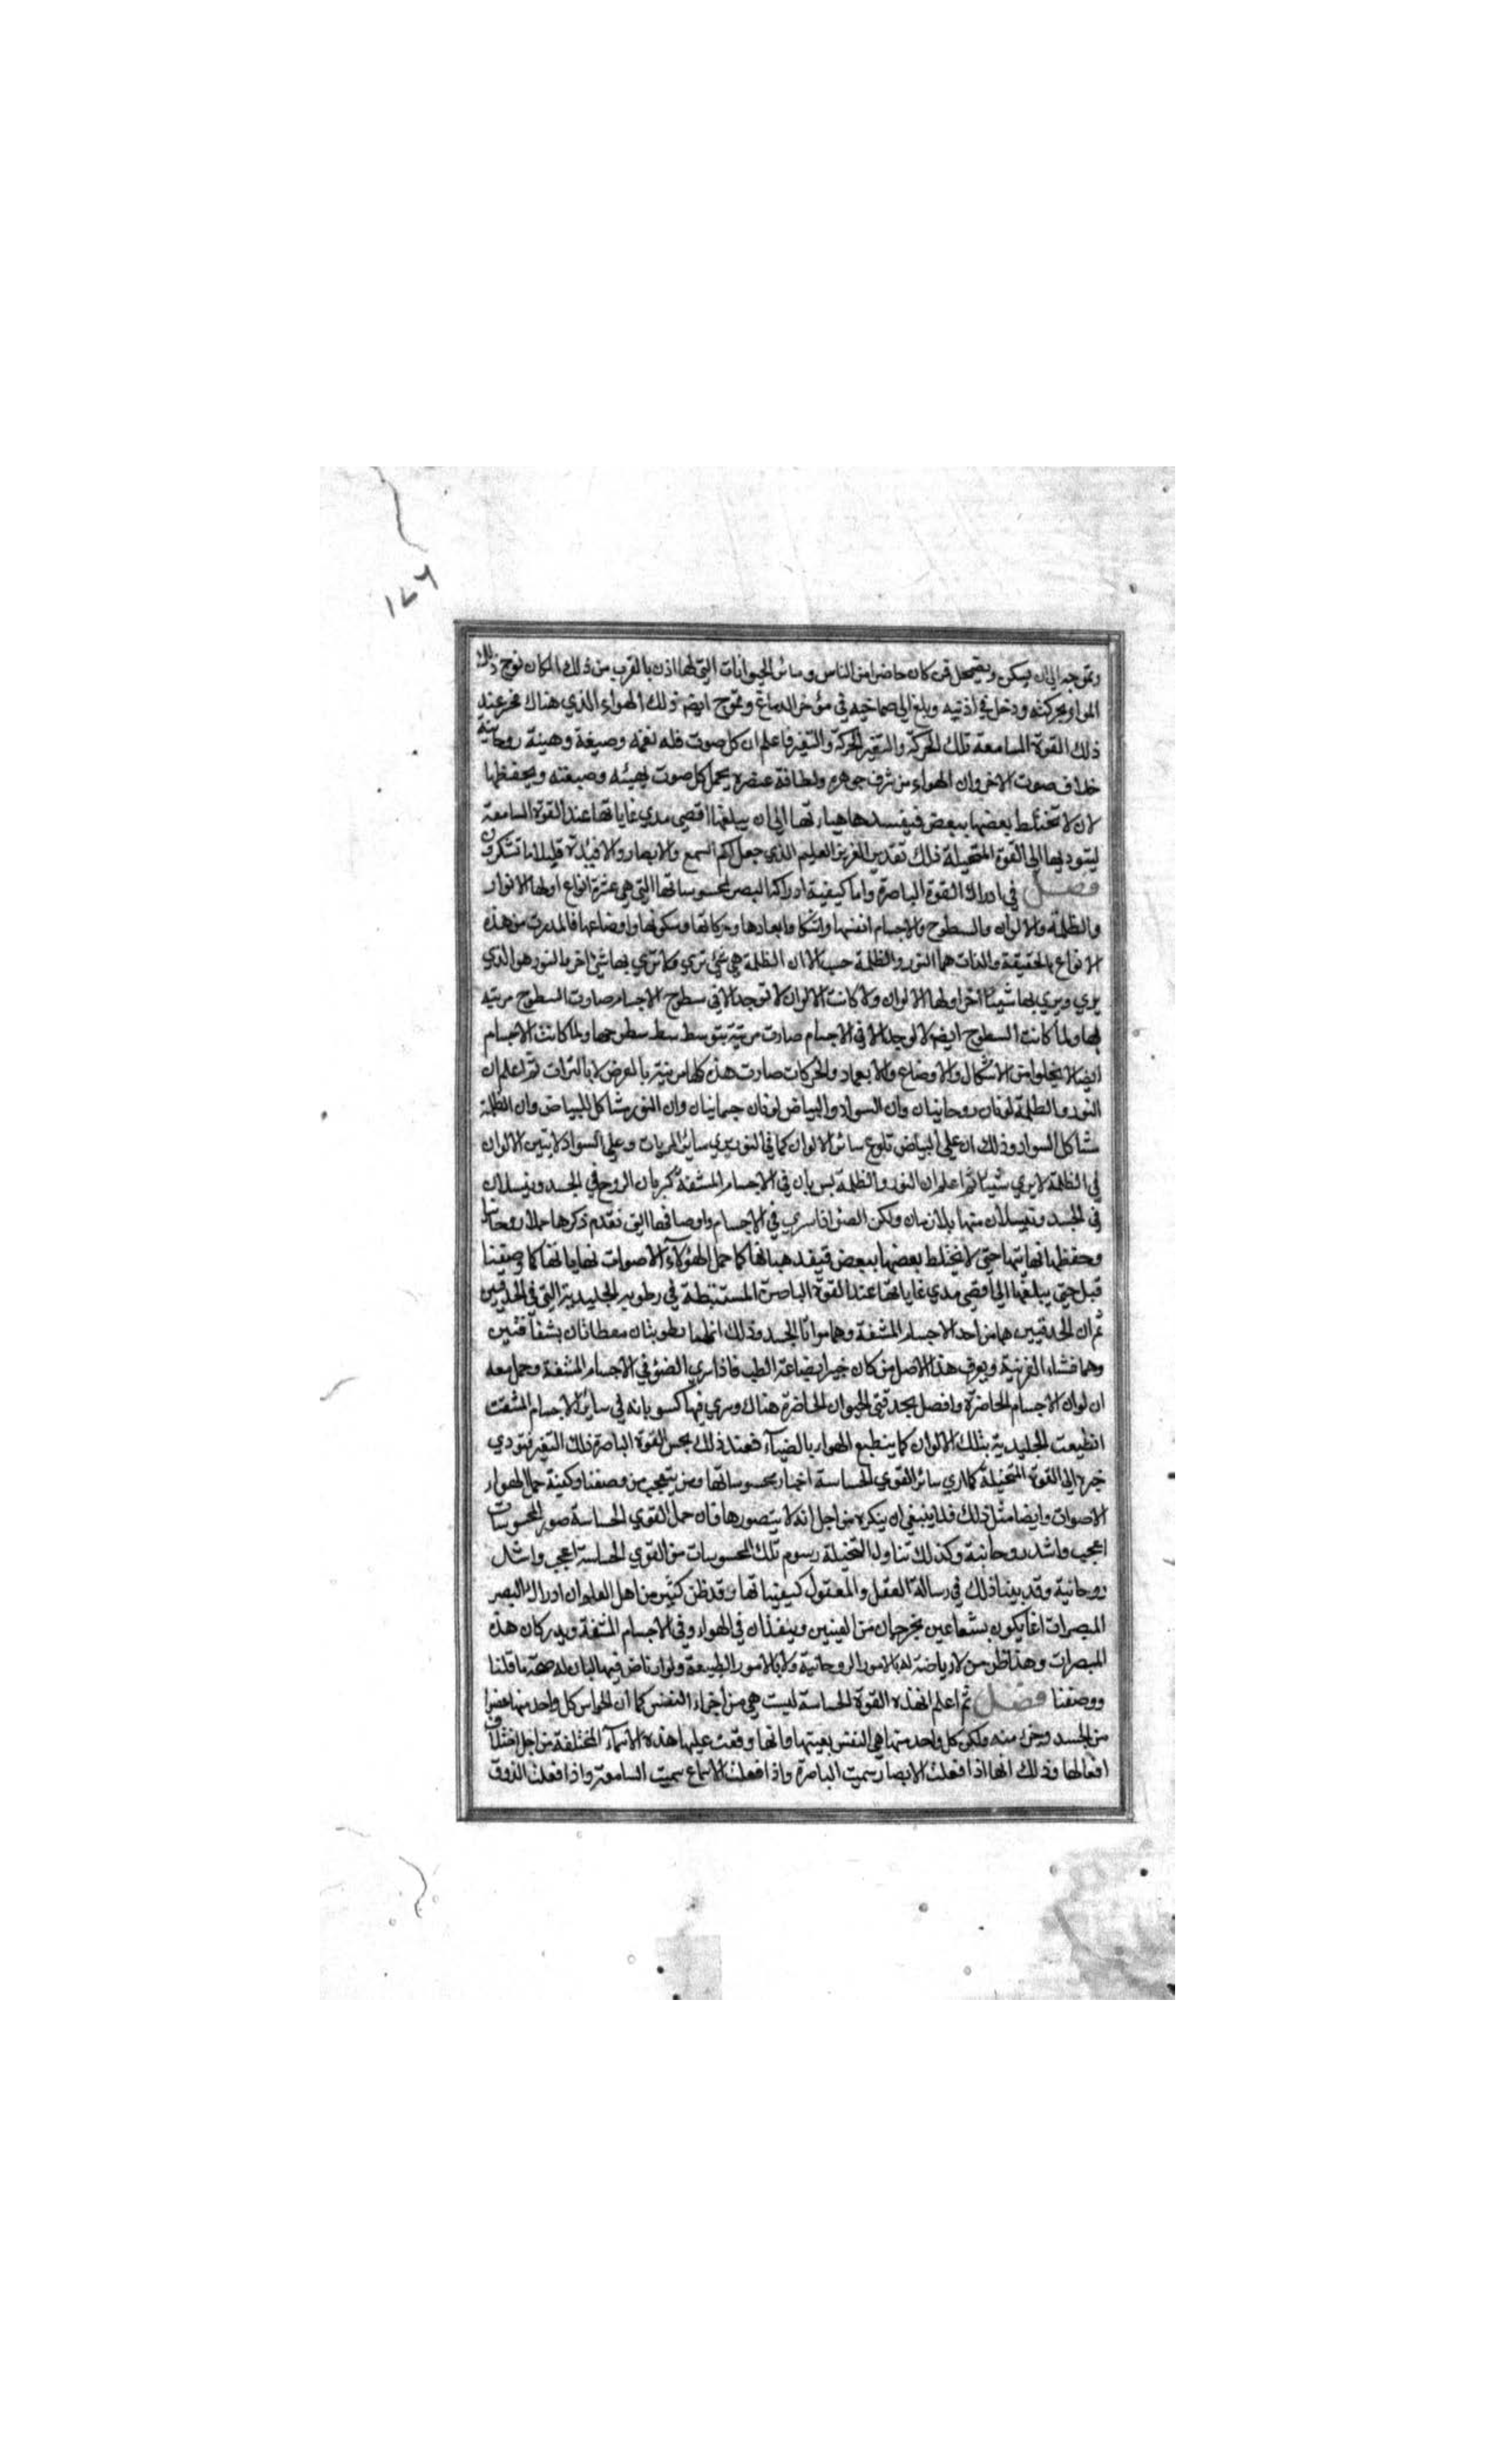 ١٤٦
وتموجه الى ان يسكن ويضمحل فمن كان حاضرا من الناس وسائر الحيوانات التي لها اذن بالقرب من ذلك المكان تموج ذلك
الهواء بحركته ودخل في اذنيه وبلغ الى صماخيه في مؤخر الدماغ وتموج ايضا ذلك الهواء الذي هناك فحس عند
ذلك القوة السامعة تلك الحركة والتغير فاعلم ان كل صوت فله نغمة وصيغة وهيئة روحانية
خلاف صوت الاخر وان الهواء من شرف جوهره ولطافة عنصره يحمل كل صوت بهيئته وصيغته ويحفظها
لان لا تختلط بعضها ببعض فيفسد هيأتها الى ان يبلغها اقصى مدى غاياتها عند القوة السامعة
ليتوديها الى القوة المتخيلة ذلك تقدير العزيز العليم الذي جعل لكم السمع والابصار والافئدة قليلا ما تشكرون
فصل في ادراك القوة الباصرة واما كيفية ادراك البصر لمحسوساتها التي هي عشرة انواع اولها الانوار
والظلمة والالوان والسطوح والاجسام انفسها واشكالها وابعادها وحركاتها وسكونها واوضاعها فالمدرك من هذه
الانواع بالحقيقة والذات هما النور والظلمة حسب الا ان الظلمة هي شئ ترى ولا ترى بها شئ اخر والنور هو الذي
يرى ويرى بها شيئا اخر اولها الالوان ولا كانت الالوان لا توجد الا في سطوح الاجسام صارت السطوح مرئية
بها ولما كانت السطوح ايضا لا توجد الا في الاجسام صارت مرئية بتوسط سطوحها ولما كانت الاجسام
ايضا لا يخلوا من الاشكال والاوضاع والابعاد والحركات صارت هذه كلها مرئية بالعرض لا بالذات ثم اعلم ان
النور والظلمة لونان روحانيان وان السواد والبياض لونان جسمانيان وان النور مشاكل للبياض وان الظلمة
مشاكل السواد وذلك ان على البياض تلوح سائر الالوان كما في النور يرى سائر المرئيات وعلى السواد لا يتبين الالوان
في الظلمة لا يرى شيئا ثم اعلم ان النور والظلمة يسريان في الاجسام المشفة كسريان الروح في الجسد وينسلان
في الجسد وينسلان منها بلا زمان ولكن الضوء اذا سرى في الاجسام واوصافها التي تقدم ذكرها حملا روحانيا
وحفظها نهاياتها حتى لا تختلط بعضها ببعض فيفسد هيأتها كما حمل الهواء الاصوات نهاياتها كما وصفنا
قبل حتى يبلغها الى اقصى مدى غاياتها عند القوة الباصرة المستنبطة في رطوبة الجليدية التي في الحدقتين
ثم ان الحدقتين هما من احد الاجسام المشفة وهما مرآتا الجسد وذلك انهما رطوبتان مغطاتان بشفافتين
وهما غشاء القرنية ويعرف هذا الاصل من كان خبيرا بصناعة الطب فاذا سرى الضوء في الاجسام المشفة وحمل معه
الوان الاجسام الحاضرة واتصل بحدقتي الحيوان الحاضرة هناك وسرى فيها كسريانه في سائر الاجسام المشفة
انطبعت الجليدية بتلك الالوان كما ينطبع الهواء بالضياء فعند ذلك يحس القوة الباصرة ذلك التغير فتودي
خبره الى القوة المتخيلة كما ادى سائر القوى الحساسة اخبار محسوساتها ومن يتعجب من وصفنا وكيفية حمل الهواء
الاصوات وايضا مثل ذلك فلا ينبغي ان ينكره من اجل انه لا يتصورها فان حمل القوى الحساسة صور المحسوسات
اعجب واشد روحانية وكذلك تناول المتخيلة رسوم تلك المحسوسات من القوى الحساسة اعجب واشد
روحانية وقد بينا ذلك في رسالة العقل والمعقول كيفياتها وقد ظن كثير من اهل العلم ان ادراك البصر
المبصرات انما يكون بشعاعين يخرجان من العينين وينفذان في الهواء وفي الاجسام المشفة ويدركان هذه
المبصرات وهذا ظن من لا رياضة له بالامور الروحانية ولا بالامور الطبيعة ولو ارتاض فيها لبان له صحة ما قلنا
ووصفنا فصل ثم اعلم ان هذه القوة الحساسة ليست هي من اجزاء النفس كما ان الحواس كل واحد منها عضوا
من الجسد وجزء منه ولكن كل واحد منها هي النفس بعينها وانما وقعت عليها هذه الاسماء المختلفة من اجل اختلاف
افعالها وذلك انها اذا فعلت الابصار سميت الباصرة واذا فعلت الاسماع سميت السامعة واذا فعلت الذوق